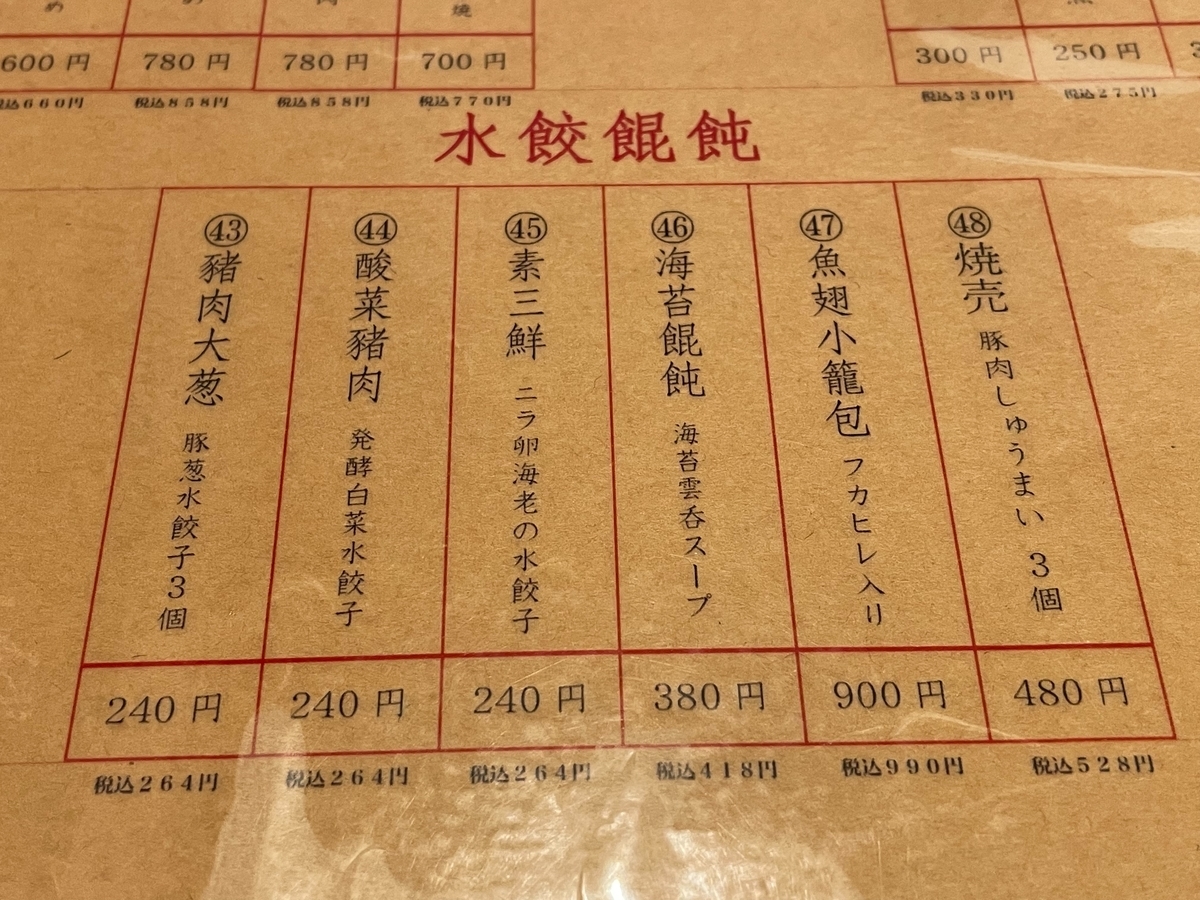 600 円
780 円
780 円
700 円
300 円
250 円
税込660円
税込858円
税込858円
税込770円
税込330円
税込275円
水餃餛飩
㊸豬肉大葱 豚葱水餃子3個
240 円
税込264円
㊹酸菜豬肉 発酵白菜水餃子
240 円
税込264円
㊺素三鮮 ニラ卵海老の水餃子
240 円
税込264円
㊻海苔餛飩 海苔雲呑スープ
380 円
税込418円
㊼魚翅小籠包 フカヒレ入り
900 円
税込990円
㊽焼売 豚肉しゅうまい 3個
480 円
税込528円